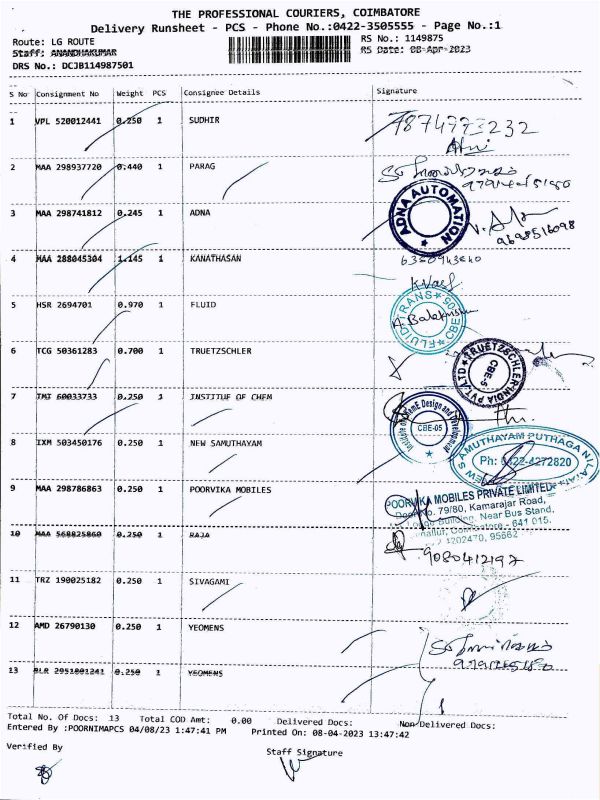 THE PROFESSIONAL COURIERS, COIMBATORE
Delivery Runsheet - PCS - Phone No.:0422-3505555 - Page No.:1
Route: LG ROUTE RS No.: 1149875
Staff: ANANDHAKUMAR RS Date: 08-Apr-2023
DRS No.: DCJB114987501
S No Consignment No Weight PCS Consignee Details Signature
1 VPL 520012441 0.250 1 SUDHIR
7874993232
2 MAA 298937720 0.440 1 PARAG
3 MAA 298741812 0.245 1 ADNA
ADNA AUTOMATION
9698516098
4 MAA 288045304 1.145 1 KANATHASAN
5 HSR 2694701 0.970 1 FLUID
FLUID TRANS CBE
6 TCG 50361283 0.700 1 TRUETZSCHLER
TRUETZSCHLER INDIA PVT.LTD CBE-5
7 TMT 60033733 0.250 1 INSTITUF OF CHEM
CBE-05
8 IXM 503450176 0.250 1 NEW SAMUTHAYAM
NEW SAMUTHAYAM PUTHAGA NILAIAM
Ph: 0422-4272820
9 MAA 298786863 0.250 1 POORVIKA MOBILES
POORVIKA MOBILES PRIVATE LIMITED
Door No. 79/80, Kamarajar Road,
Building, Near Bus Stand,
Coimbatore - 641 015.
10 MAA 568825860 0.250 1 RAJA
9080412197
11 TRZ 190025182 0.250 1 SIVAGAMI
12 AMD 26790130 0.250 1 YEOMENS
13 BLR 2951001241 0.250 1 YEOMENS
Total No. Of Docs: 13 Total COD Amt: 0.00 Delivered Docs: Non Delivered Docs:
Entered By :POORNIMAPCS 04/08/23 1:47:41 PM Printed On: 08-04-2023 13:47:42
Verified By Staff Signature